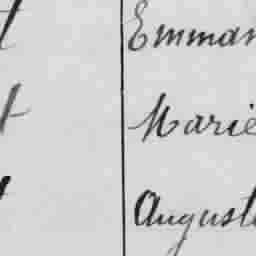 t Emman
t Marie
t August